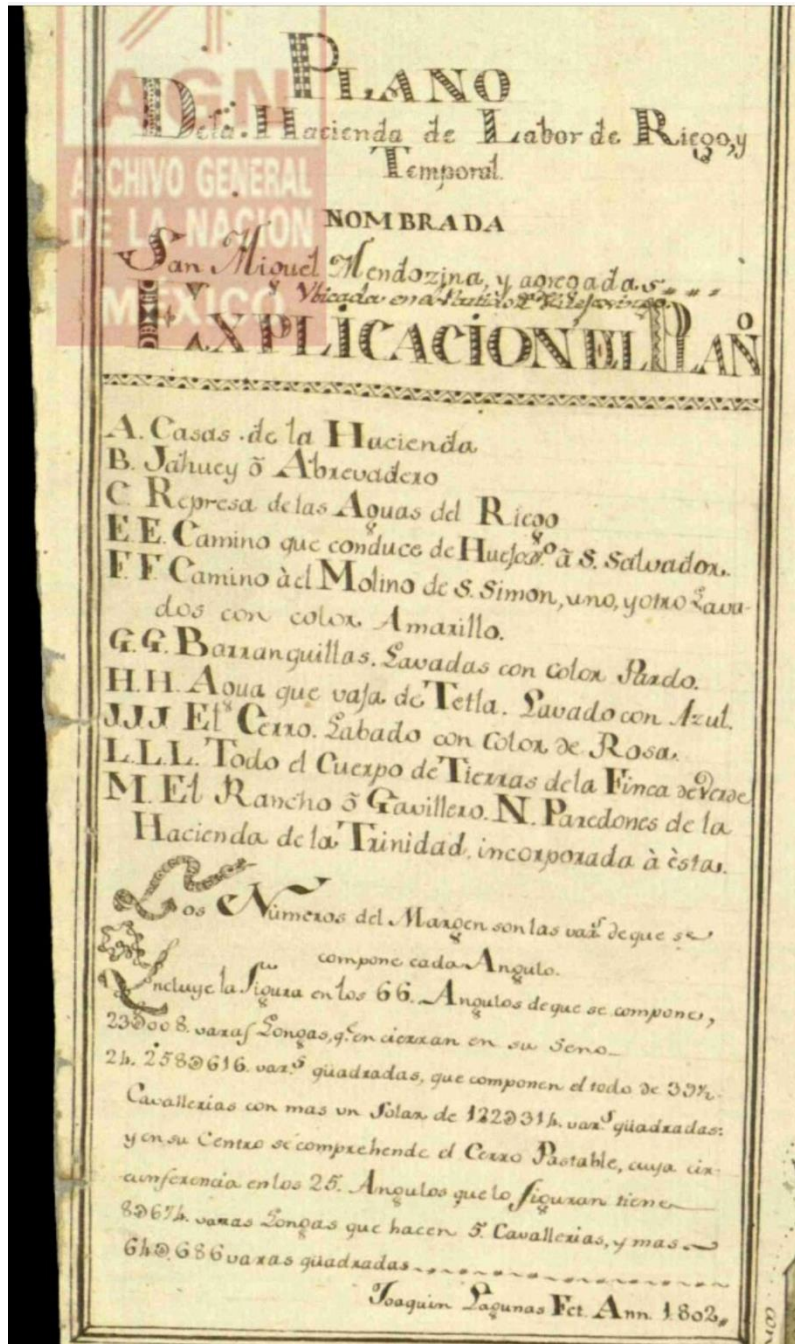 PLANO
De la. Hacienda de Labor de Riego, y
Temporal.
NOMBRADA
San Miguel Mendozina, y agregadas
Ubicada en el Partido de
EXPLICACION EL PLAÑO
A. Casas de la Hacienda
B. Jahuey ô Abrevadero
C. Represa de las Aguas del Riego
E.E. Camino que conduce de Huejoz.º â S. Salvador.
F. F. Camino àel Molino de S. Simon, uno, y otro Lava-
dos con color Amarillo.
G.G. Barranquillas. Lavadas con Color Pardo.
H.H. Agua que vaja de Tetla. Lavado con Azul.
JJJ El Cerro. Labado con Color de Rosa.
L.L.L. Todo el Cuerpo de Tierras de la Finca de Verde
M. El Rancho ô Gavillero. N. Paredones de la
Hacienda de la Trinidad, incorporada à èsta.
Los Números del Margen son las var.s de que se
compone cada Angulo.
Yncluye la figura en los 66. Angulos de que se compone,
23D008. varas Longas, q.e en cierran en su Seno
24. 258D616. var.s quadradas, que componen el todo de 39½
Cavallerias con mas un Solar de 122D314. var.s quadradas:
y en su Centro se comprehende el Cerro Pastable, cuya cir-
cunferencia en los 25. Angulos que lo figuran tiene
8D674. varas Longas que hacen 5. Cavallerias, y mas
64D.686 varas quadradas
Joaquin Lagunas Fct. Ann. 1802,,
AGN
ARCHIVO GENERAL
DE LA NACION
MÉXICO